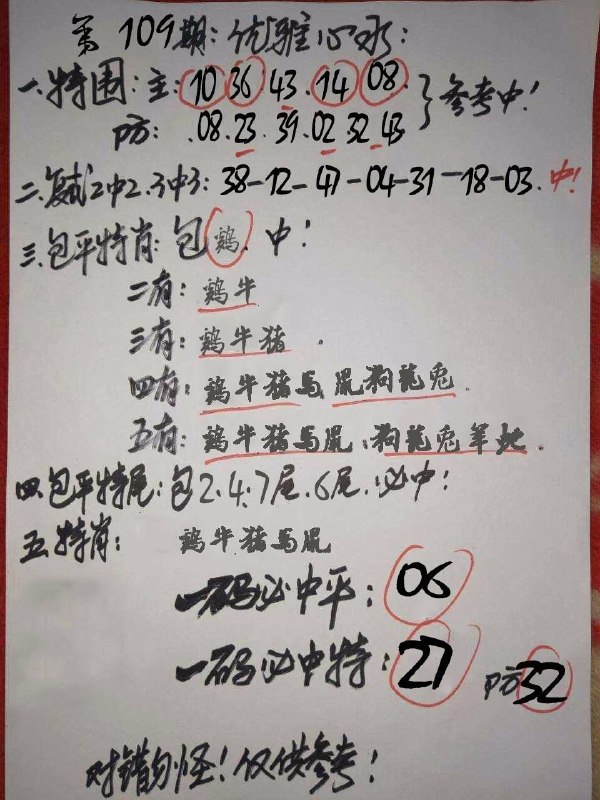 第109期:优雅心水:
一.特围:主:10 36 43.14 08.
防: .08.23.39.02 32 43 } 参考中!
二.复试2中2.3中3:38-12-47-04-31-18-03.中!
三.包平特肖:包鸡.中!
二有:鸡牛
三有:鸡牛猪.
四有:鸡牛猪马鼠狗龙兔.
五有:鸡牛猪马鼠、狗龙兔羊蛇.
四.包平特尾:包2.4.7尾.6尾.必中!
五.特肖:鸡牛猪马鼠
一码必中平:06
一码必中特:27 防32
对错勿怪!仅供参考!